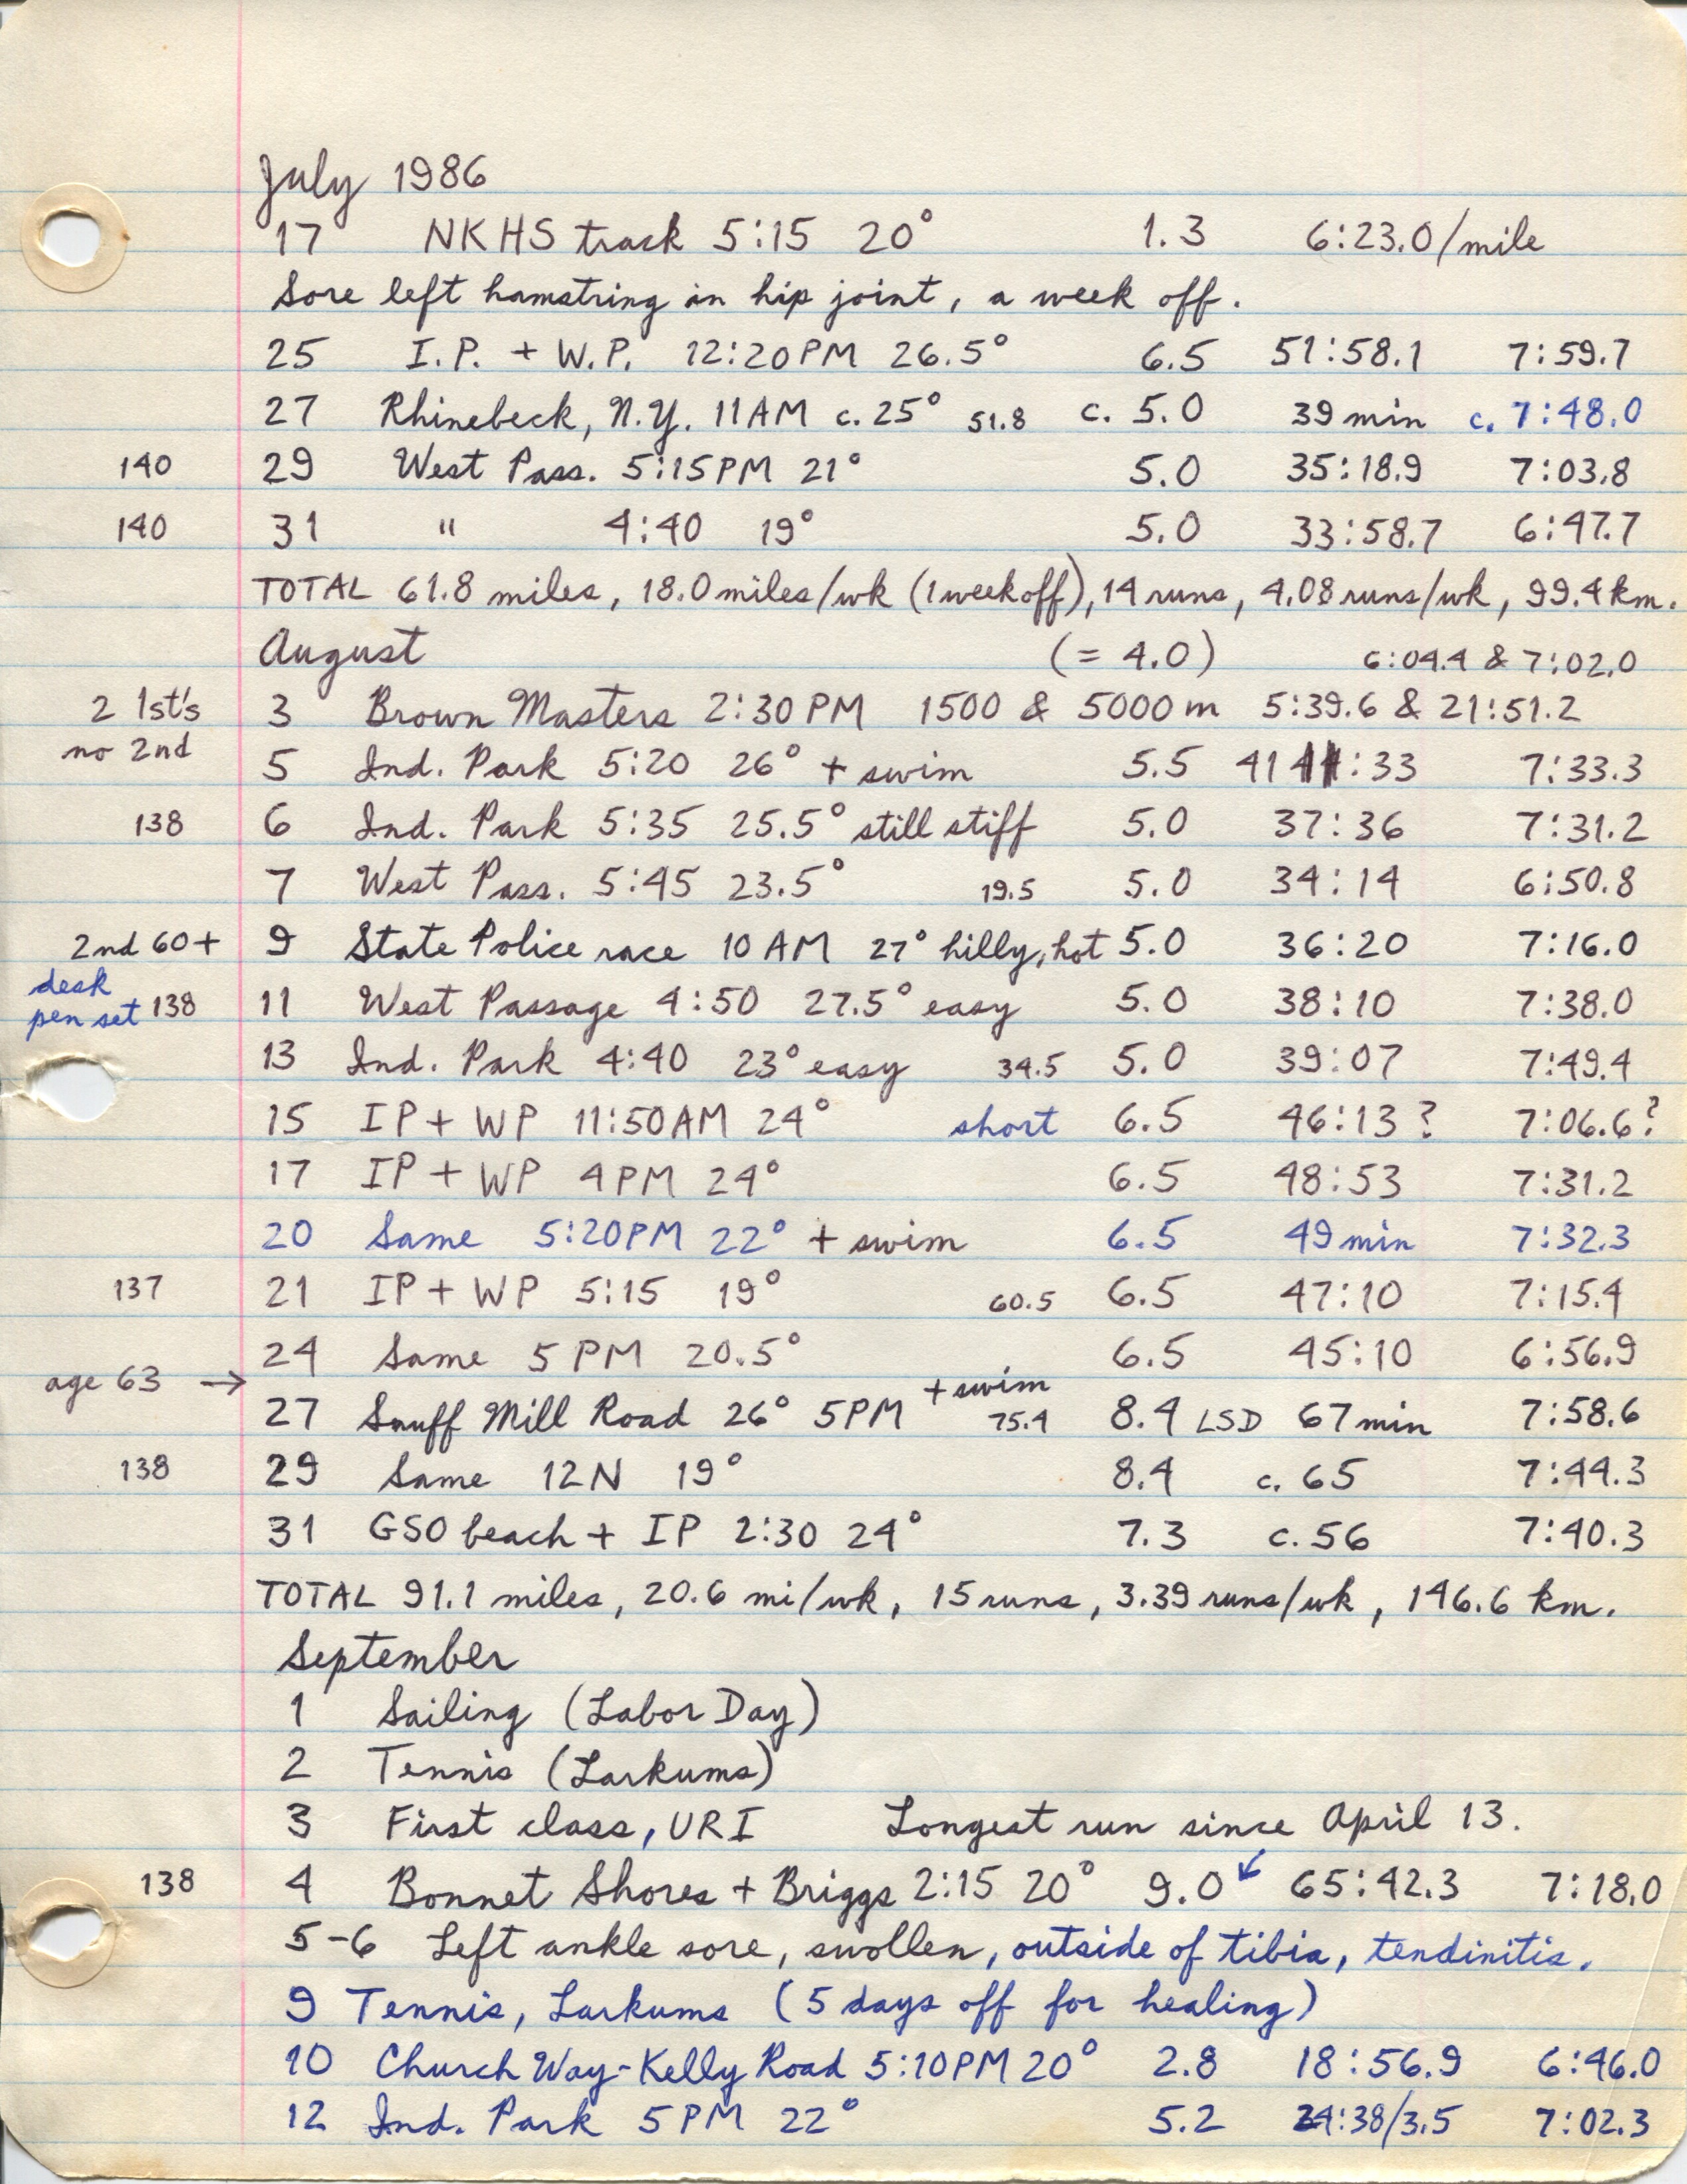 July 1986
17 NKHS track 5:15 20° 1.3 6:23.0/mile
Sore left hamstring in hip joint, a week off.
25 I.P. + W.P. 12:20PM 26.5° 6.5 51:58.1 7:59.7
27 Rhinebeck, N.Y. 11AM c. 25° 51.8 c. 5.0 39 min c. 7:48.0
140 29 West Pass. 5:15PM 21° 5.0 35:18.9 7:03.8
140 31 " 4:40 19° 5.0 33:58.7 6:47.7
TOTAL 61.8 miles, 18.0 miles/wk (1 week off), 14 runs, 4.08 runs/wk, 99.4 km.
August (= 4.0) 6:04.4 & 7:02.0
2 1st's 3 Brown Masters 2:30 PM 1500 & 5000 m 5:39.6 & 21:51.2
no 2nd 5 Ind. Park 5:20 26° + swim 5.5 41:33 7:33.3
138 6 Ind. Park 5:35 25.5° still stiff 5.0 37:36 7:31.2
7 West Pass. 5:45 23.5° 19.5 5.0 34:14 6:50.8
2nd 60+ 9 State Police race 10 AM 27° hilly, hot 5.0 36:20 7:16.0
desk
pen set 138 11 West Passage 4:50 27.5° easy 5.0 38:10 7:38.0
13 Ind. Park 4:40 23° easy 34.5 5.0 39:07 7:49.4
15 IP + WP 11:50AM 24° short 6.5 46:13 ? 7:06.6?
17 IP + WP 4PM 24° 6.5 48:53 7:31.2
20 Same 5:20PM 22° + swim 6.5 49 min 7:32.3
137 21 IP + WP 5:15 19° 60.5 6.5 47:10 7:15.4
24 Same 5 PM 20.5° 6.5 45:10 6:56.9
age 63 →
27 Snuff Mill Road 26° 5PM + swim 75.4 8.4 LSD 67 min 7:58.6
138 29 Same 12N 19° 8.4 c. 65 7:44.3
31 GSO beach + IP 2:30 24° 7.3 c. 56 7:40.3
TOTAL 91.1 miles, 20.6 mi/wk, 15 runs, 3.39 runs/wk, 146.6 km.
September
1 Sailing (Labor Day)
2 Tennis (Larkums)
3 First class, URI Longest run since April 13.
138 4 Bonnet Shores + Briggs 2:15 20° 9.0 ↙ 65:42.3 7:18.0
5-6 Left ankle sore, swollen, outside of tibia, tendinitis.
9 Tennis, Larkums (5 days off for healing)
10 Church Way-Kelly Road 5:10PM 20° 2.8 18:56.9 6:46.0
12 Ind. Park 5PM 22° 5.2 24:38/3.5 7:02.3